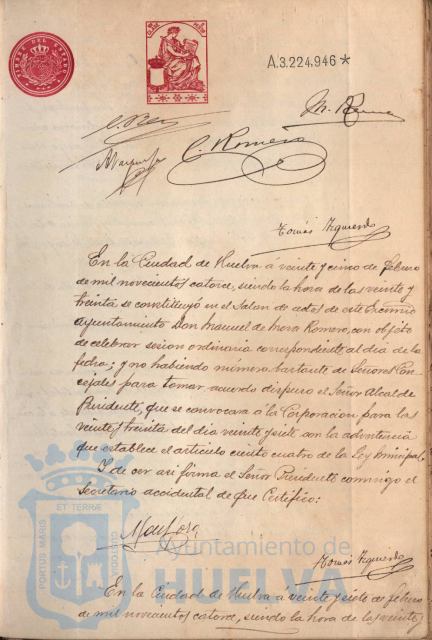 TIMBRE DEL ESTADO
A.3.224.946*
C. Romero
Tomás Izquierdo
En la Ciudad de Huelva á veinte y cinco de febrero
de mil novecientos catorce, siendo la hora de las veinte y
treinta se constituyó en el Salon de actos de este Excmo
Ayuntamiento Don Manuel de Mora Romero, con objeto
de celebrar sesion ordinaria correspondiente al dia de la
fecha; y no habiendo número bastante de Señores Con-
cejales para tomar acuerdo dispuso el Señor Alcalde
Presidente, que se convocara a la Corporacion para las
veinte y treinta del dia veinte y siete con la advertencia
que establece el articulo ciento cuatro de la Ley municipal.
Y de ser asi firma el Señor Presidente conmigo el
Secretario accidental de que Certifico:
Tomás Izquierdo
PORTUS MARIS ET TERRÆ CUSTODIA
Ayuntamiento de
HUELVA
En la Ciudad de Huelva á veinte y siete de febrero
de mil novecientos catorce, siendo la hora de las veinte y